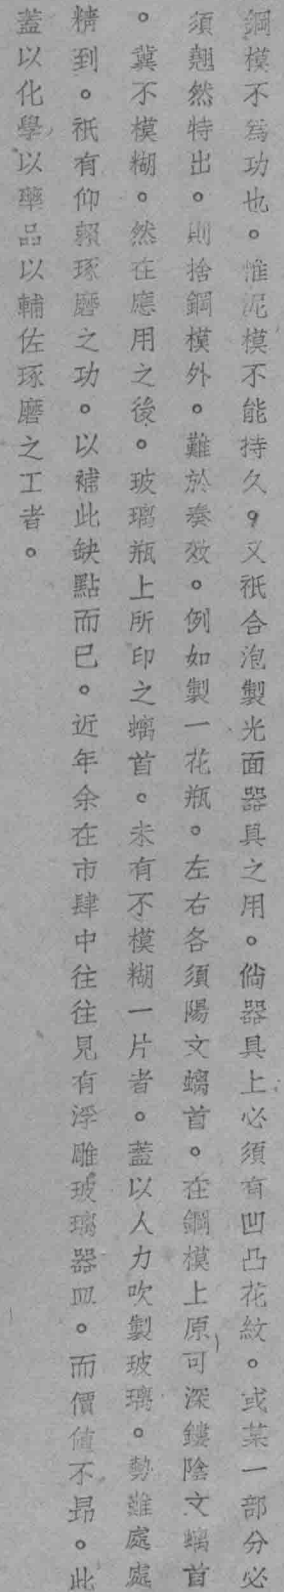 鋼模不爲功也。惟泥模不能持久，又祇合泡製光面器具之用。倘器具上必須有凹凸花紋。或某一部分必
須翹然特出。則捨鋼模外。難於奏效。例如製一花瓶。左右各須陽文螭首。在鋼模上原可深鏤陰文螭首
。冀不模糊。然在應用之後。玻璃瓶上所印之螭首。未有不模糊一片者。蓋以人力吹製玻璃。勢難處處
精到。祇有仰賴琢磨之功。以補此缺點而已。近年余在市肆中往往見有浮雕玻璃器皿。而價值不昂。此
蓋以化學以藥品以輔佐琢磨之工者。